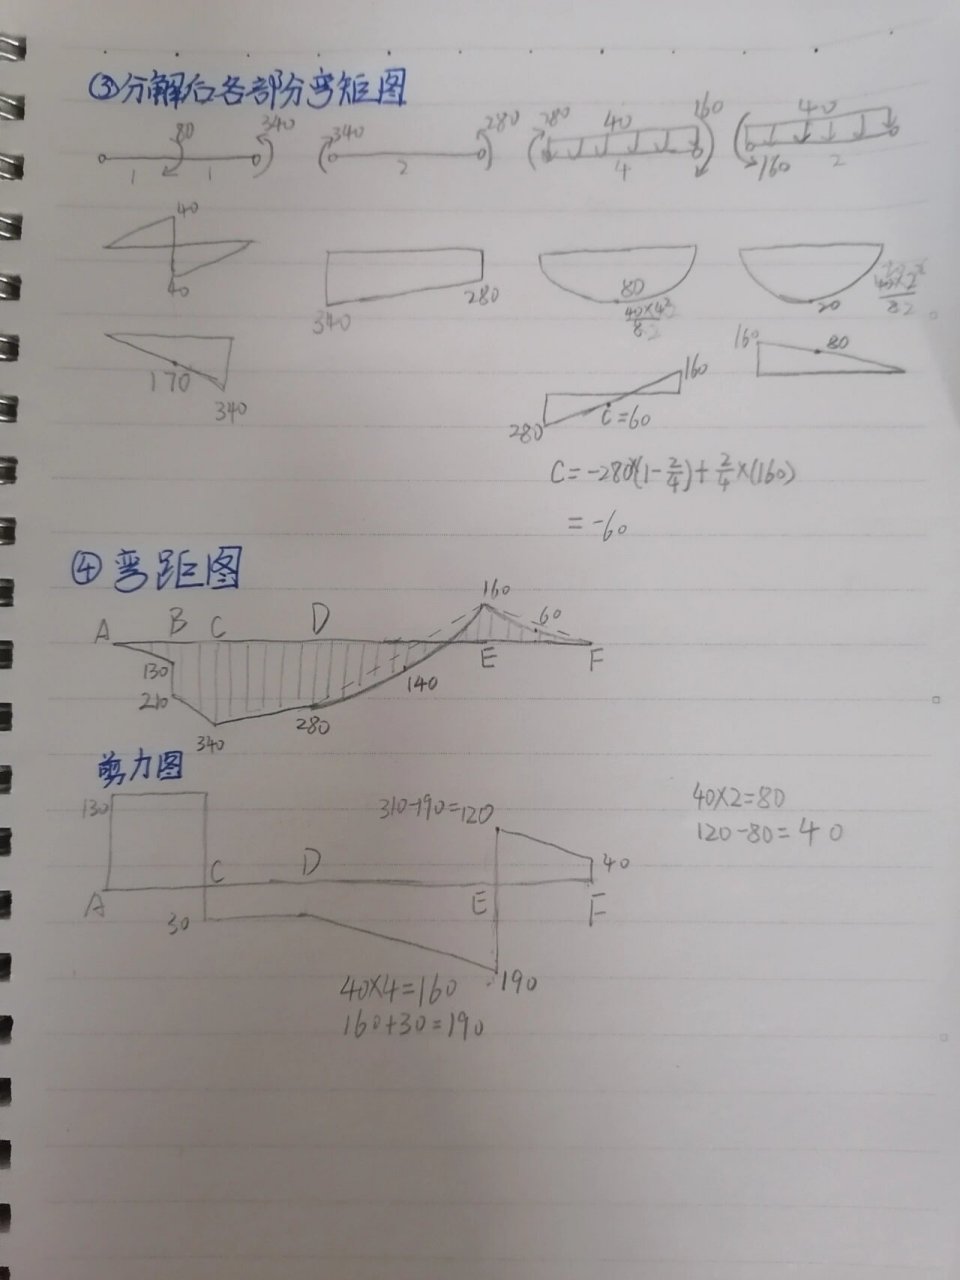 ③分解后各部分弯矩图
80 340 340 280 280 40 160 40
1 1 2 4 160 2
40
40
340 280
80
40×4²
8 2
20
40×2²
8 2
170
340
280 160
C=60
160 80
C=-280×(1-2/4)+2/4×(160)
=-60
④ 弯距图
A B C D E F
130
210
340
280
140
160
60
剪力图
130
A C D E F
30
310-190=120
40
190
40×4=160
160+30=190
40×2=80
120-80=40